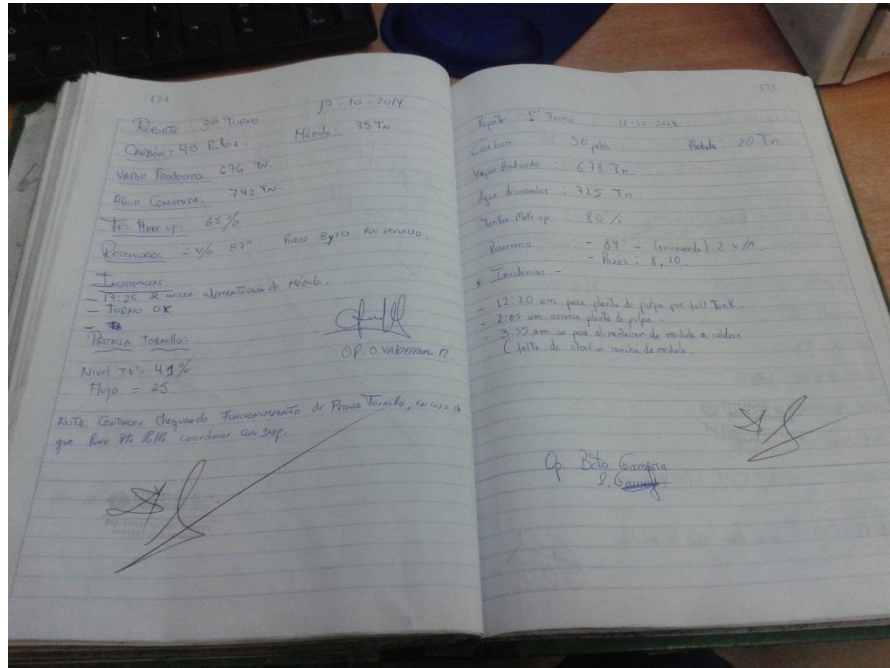 174
17-10-2014
Reporte 3er Turno
Carbón = 40 Palas. Médula: 35 Tn.
Vapor Producido: 676 Tn.
Agua Consumida: 742 Tn
TK's Make up: 65%
Reservorio: 2 V/A 87" Pozos 8 y 10 en servicio.
Incidencias
- 17:25 se inicia alimentación de Médula.
- Turno OK
-
Prensa Tornillo:
OP. O
Nivel TK's 41%
Flujo = 25
Nota: Continuar Chequeando Funcionamiento de Prensa Tornillo, en caso de
que Pare Pta coordinar con
175
Reporte 1er Turno
Carbon : 30 palas Medula: 20 Tn.
Vapor Producido : 678 Tn.
Agua : 715 Tn
Tanken Make up : 80 %
Reservorio : - 84" - 2 v/A.
- Pozos : 8, 10.
* Incidencias -
- 12:20 am para planta de pulpa por full Tank.
- 2:05 am arranca planta de pulpa.
- 3:55 am se para alimentacion de medula a caldera
( falta de stock en cancha de medula.
Op. Beto